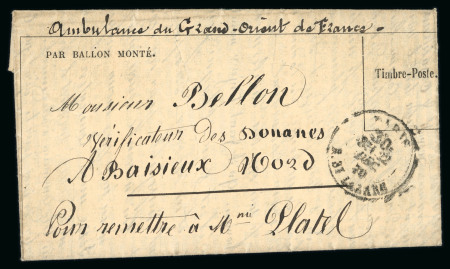 Ambulance du Grand-Orient de France.
PAR BALLON MONTÉ.
Timbre-Poste.
Monsieur Bellon
Vérificateur des Douanes
A Baisieux Nord
Pour remettre à Mr Platel
PARIS
30
DEC
70
R. ST LAZARE